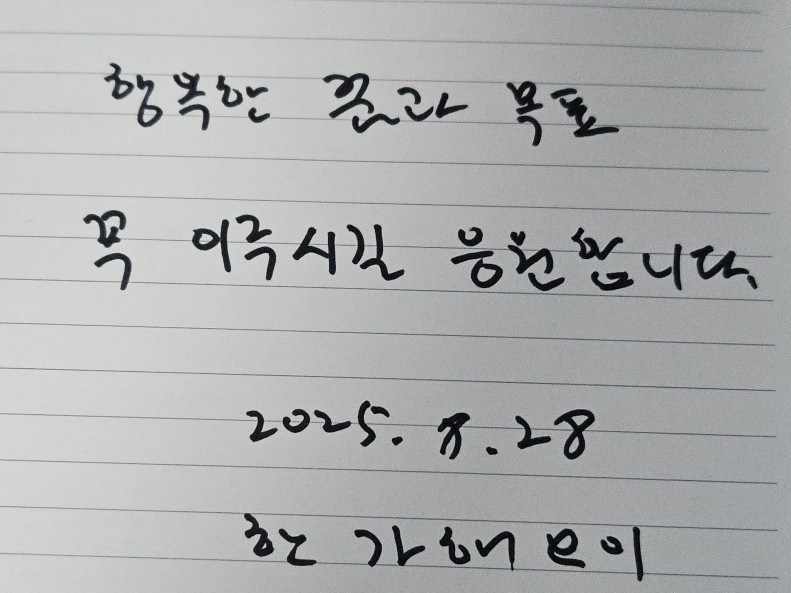 행복한 꿈과 목표
꼭 이루시길 응원합니다.
2025. 8. 28
한